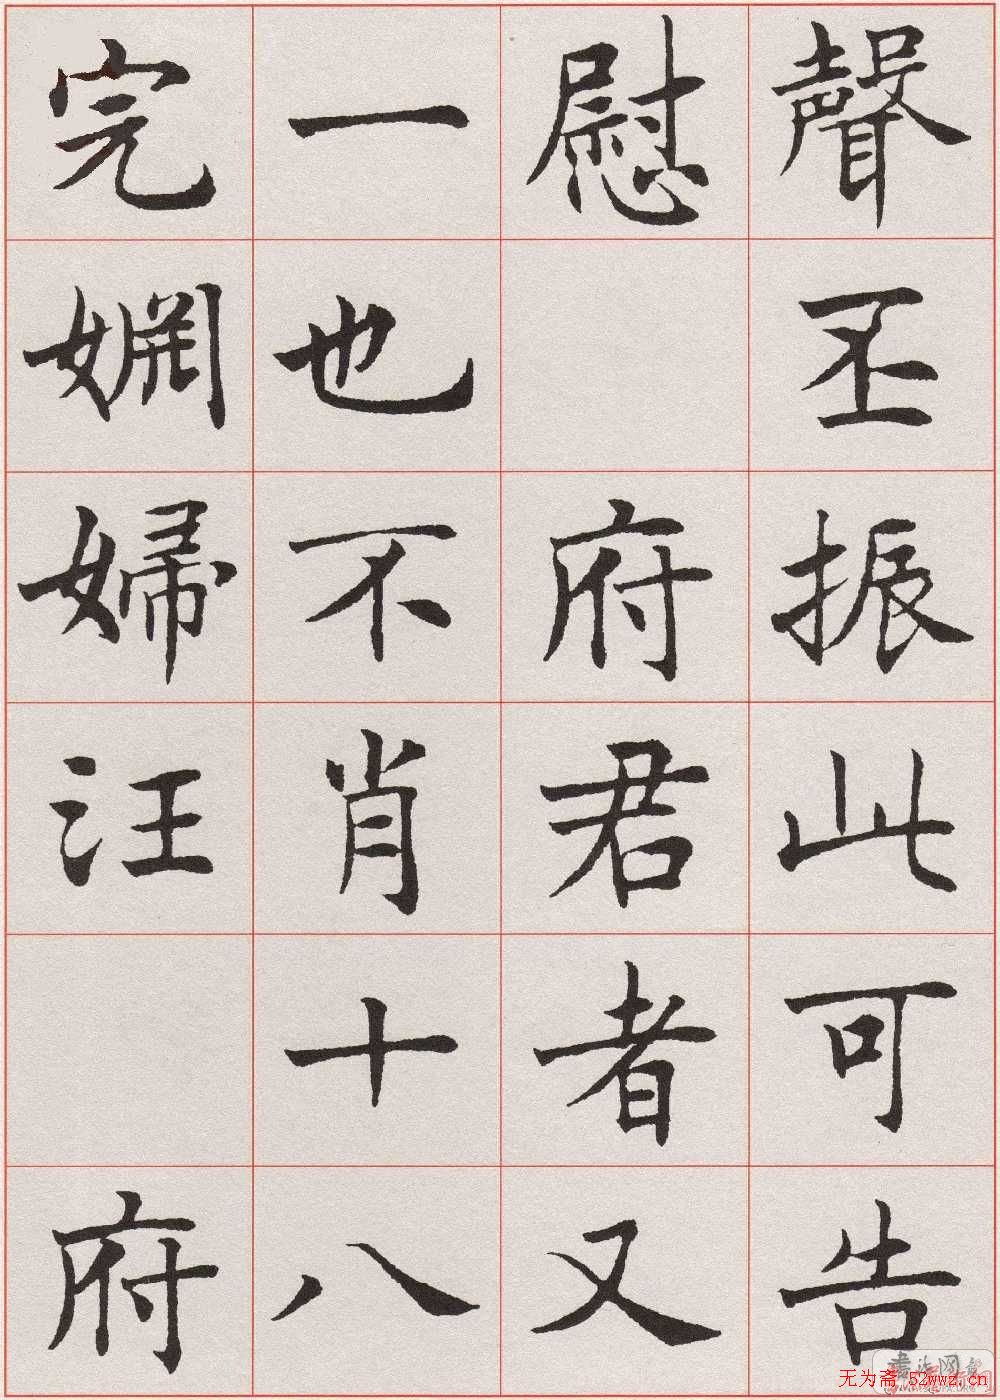 聲丕振此可告
慰 府君者又
一也不肖十八
完婣婦汪 府
书法网
无为斋 52wwz.cn